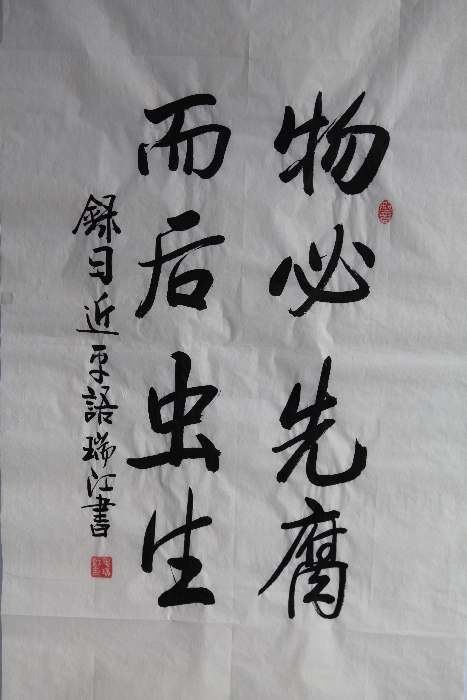 物必先腐
而后虫生
録习近平語瑞江書